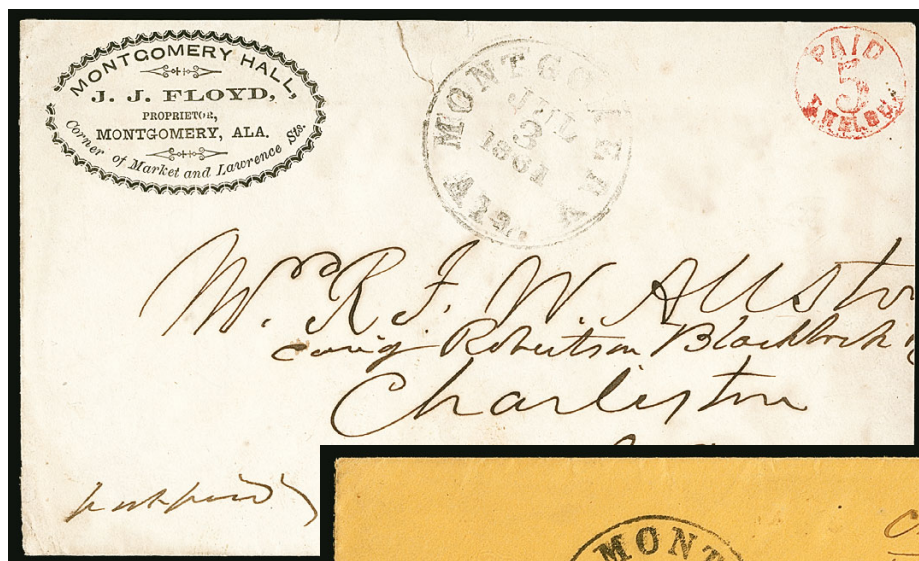 MONTGOMERY HALL,
J. J. FLOYD,
PROPRIETOR,
MONTGOMERY, ALA.
Corner of Market and Lawrence Sts.
MONTGOMERY
JUL
3
1861
ALA.
PAID
5
Mrs. R. F. W. Allston
Robertson Blacklock
Charleston
postpaid
MONT